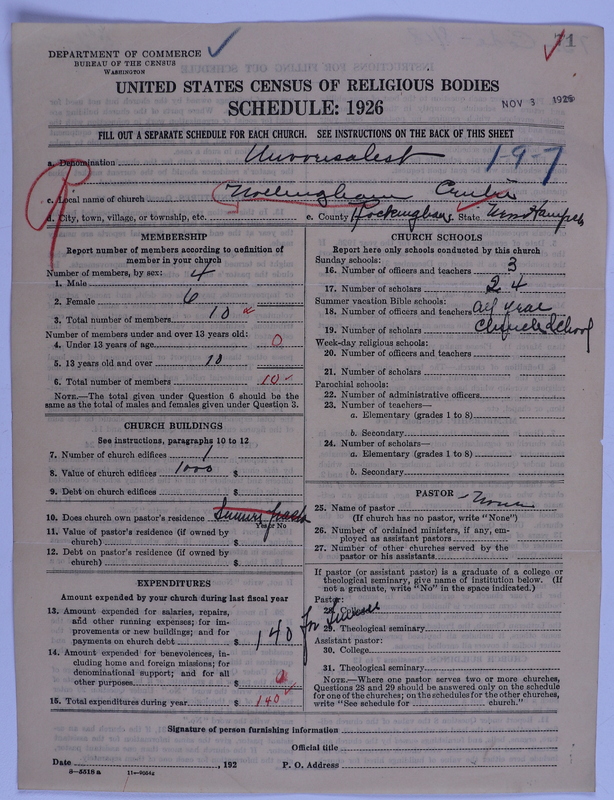 71
DEPARTMENT OF COMMERCE
BUREAU OF THE CENSUS
WASHINGTON
UNITED STATES CENSUS OF RELIGIOUS BODIES
SCHEDULE: 1926
NOV 3 1926
FILL OUT A SEPARATE SCHEDULE FOR EACH CHURCH. SEE INSTRUCTIONS ON THE BACK OF THIS SHEET
a. Denomination Universalist 1-9-7
c. Local name of church Nottingham Center
d. City, town, village, or township, etc. e. County Rockingham State New Hampshire
MEMBERSHIP
Report number of members according to definition of
member in your church
Number of members, by sex:
1. Male 4
2. Female 6
3. Total number of members 10
Number of members under and over 13 years old:
4. Under 13 years of age 0
5. 13 years old and over 10
6. Total number of members 10
NOTE.—The total given under Question 6 should be
same as the total of males and females given under Question 3.
CHURCH BUILDINGS
See instructions, paragraphs 10 to 12
7. Number of church edifices 1
8. Value of church edifices $ 1000
9. Debt on church edifices $
10. Does church own pastor's residence
Yes or No
11. Value of pastor's residence (if owned by
church) $
12. Debt on pastor's residence (if owned by
church) $
EXPENDITURES
Amount expended by your church during last fiscal year
13. Amount expended for salaries, repairs,
and other running expenses; for im-
provements or new buildings; and for
payments on church debt $ 140 for
14. Amount expended for benevolences, in-
cluding home and foreign missions; for
denominational support; and for all
other purposes $ 0
15. Total expenditures during year $ 140
CHURCH SCHOOLS
Report here only schools conducted by this church
Sunday schools:
16. Number of officers and teachers 3
17. Number of scholars 24
Summer vacation Bible schools:
18. Number of officers and teachers all year
19. Number of scholars church School
Week-day religious schools:
20. Number of officers and teachers
21. Number of scholars
Parochial schools:
22. Number of administrative officers
23. Number of teachers—
a. Elementary (grades 1 to 8)
b. Secondary
24. Number of scholars—
a. Elementary (grades 1 to 8)
b. Secondary
PASTOR
25. Name of pastor None
(If church has no pastor, write "None")
26. Number of ordained ministers, if any, em-
ployed as assistant pastors
27. Number of other churches served by the
pastor or his assistants
If pastor (or assistant pastor) is a graduate of a college or
theological seminary, give name of institution below. (If
not a graduate, write "No" in the space indicated.)
Pastor:
28. College
29. Theological seminary
Assistant pastor:
30. College
31. Theological seminary
NOTE.—Where one pastor serves two or more churches,
Questions 28 and 29 should be answered only on the schedule
for one of the churches; on the schedules for the other churches,
write "See schedule for church."
Signature of person furnishing information
Official title
Date , 192 P. O. Address
8-5518 a